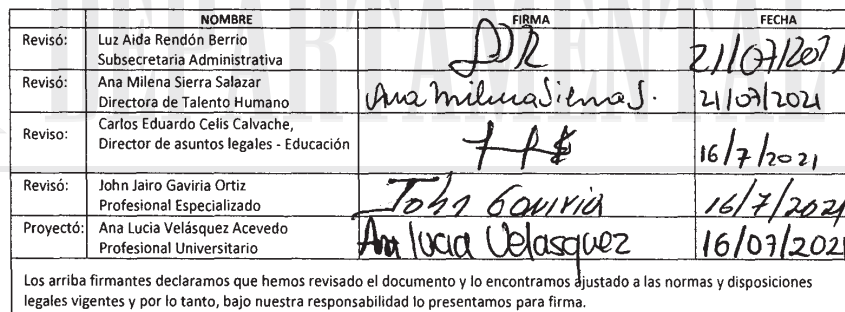 DEPARTAMENTAL
NOMBRE FIRMA FECHA
Revisó: Luz Aida Rendón Berrio
Subsecretaria Administrativa 21/07/2021
Revisó: Ana Milena Sierra Salazar
Directora de Talento Humano Ana Milena Sierra S. 21/07/2021
Reviso: Carlos Eduardo Celis Calvache,
Director de asuntos legales - Educación 16/7/2021
Revisó: John Jairo Gaviria Ortiz
Profesional Especializado John Gaviria 16/7/2021
Proyectó: Ana Lucia Velásquez Acevedo
Profesional Universitario Ana lucia Velasquez 16/07/2021
Los arriba firmantes declaramos que hemos revisado el documento y lo encontramos ajustado a las normas y disposiciones
legales vigentes y por lo tanto, bajo nuestra responsabilidad lo presentamos para firma.